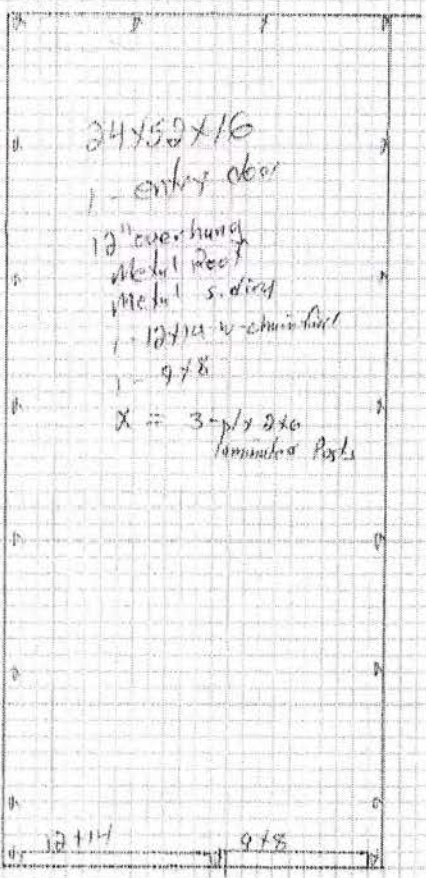 24x52x16
1 - entry door
12" overhang
Metal Roof
Metal siding
1 - 12x14 w-chain
1 - 9x8
X = 3-ply 2x6
laminated Posts
12x14 9x8